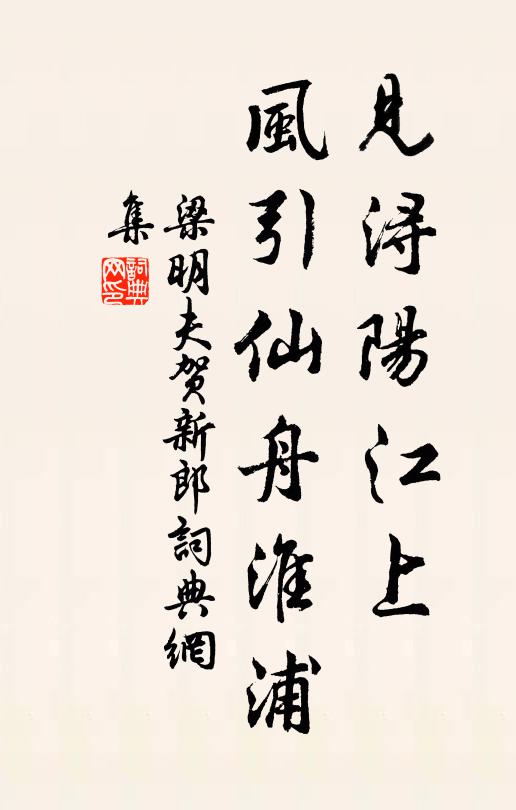 見浔陽江上
風引仙舟淮浦
梁明夫賀新郎詞典網
集
詞典
网印